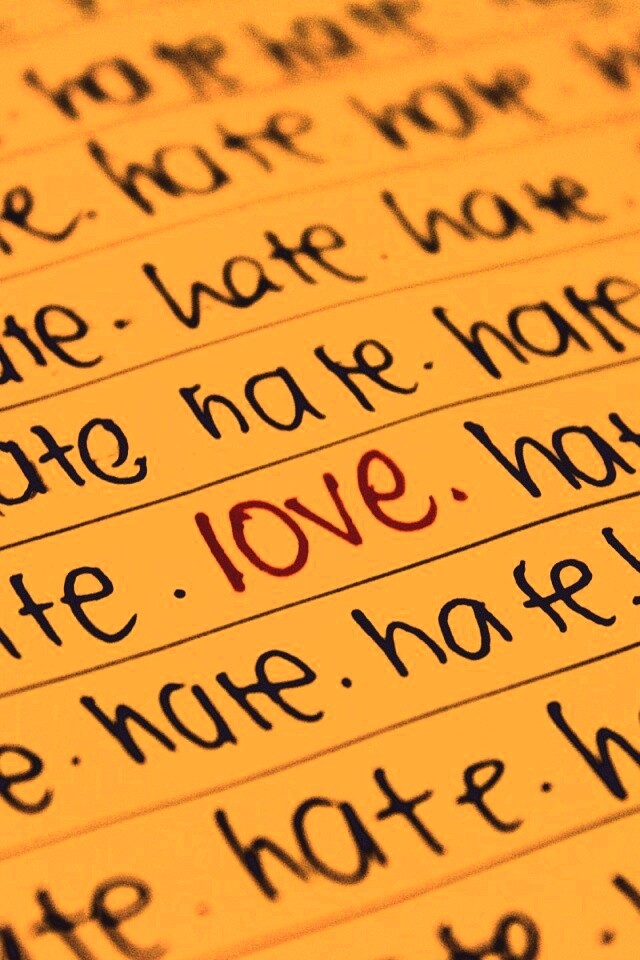 . hate hate
e. hate hate h
ate. hate. hate.
ate hate. hate
te . love. hat
e. hate. hate
ate. hate. h